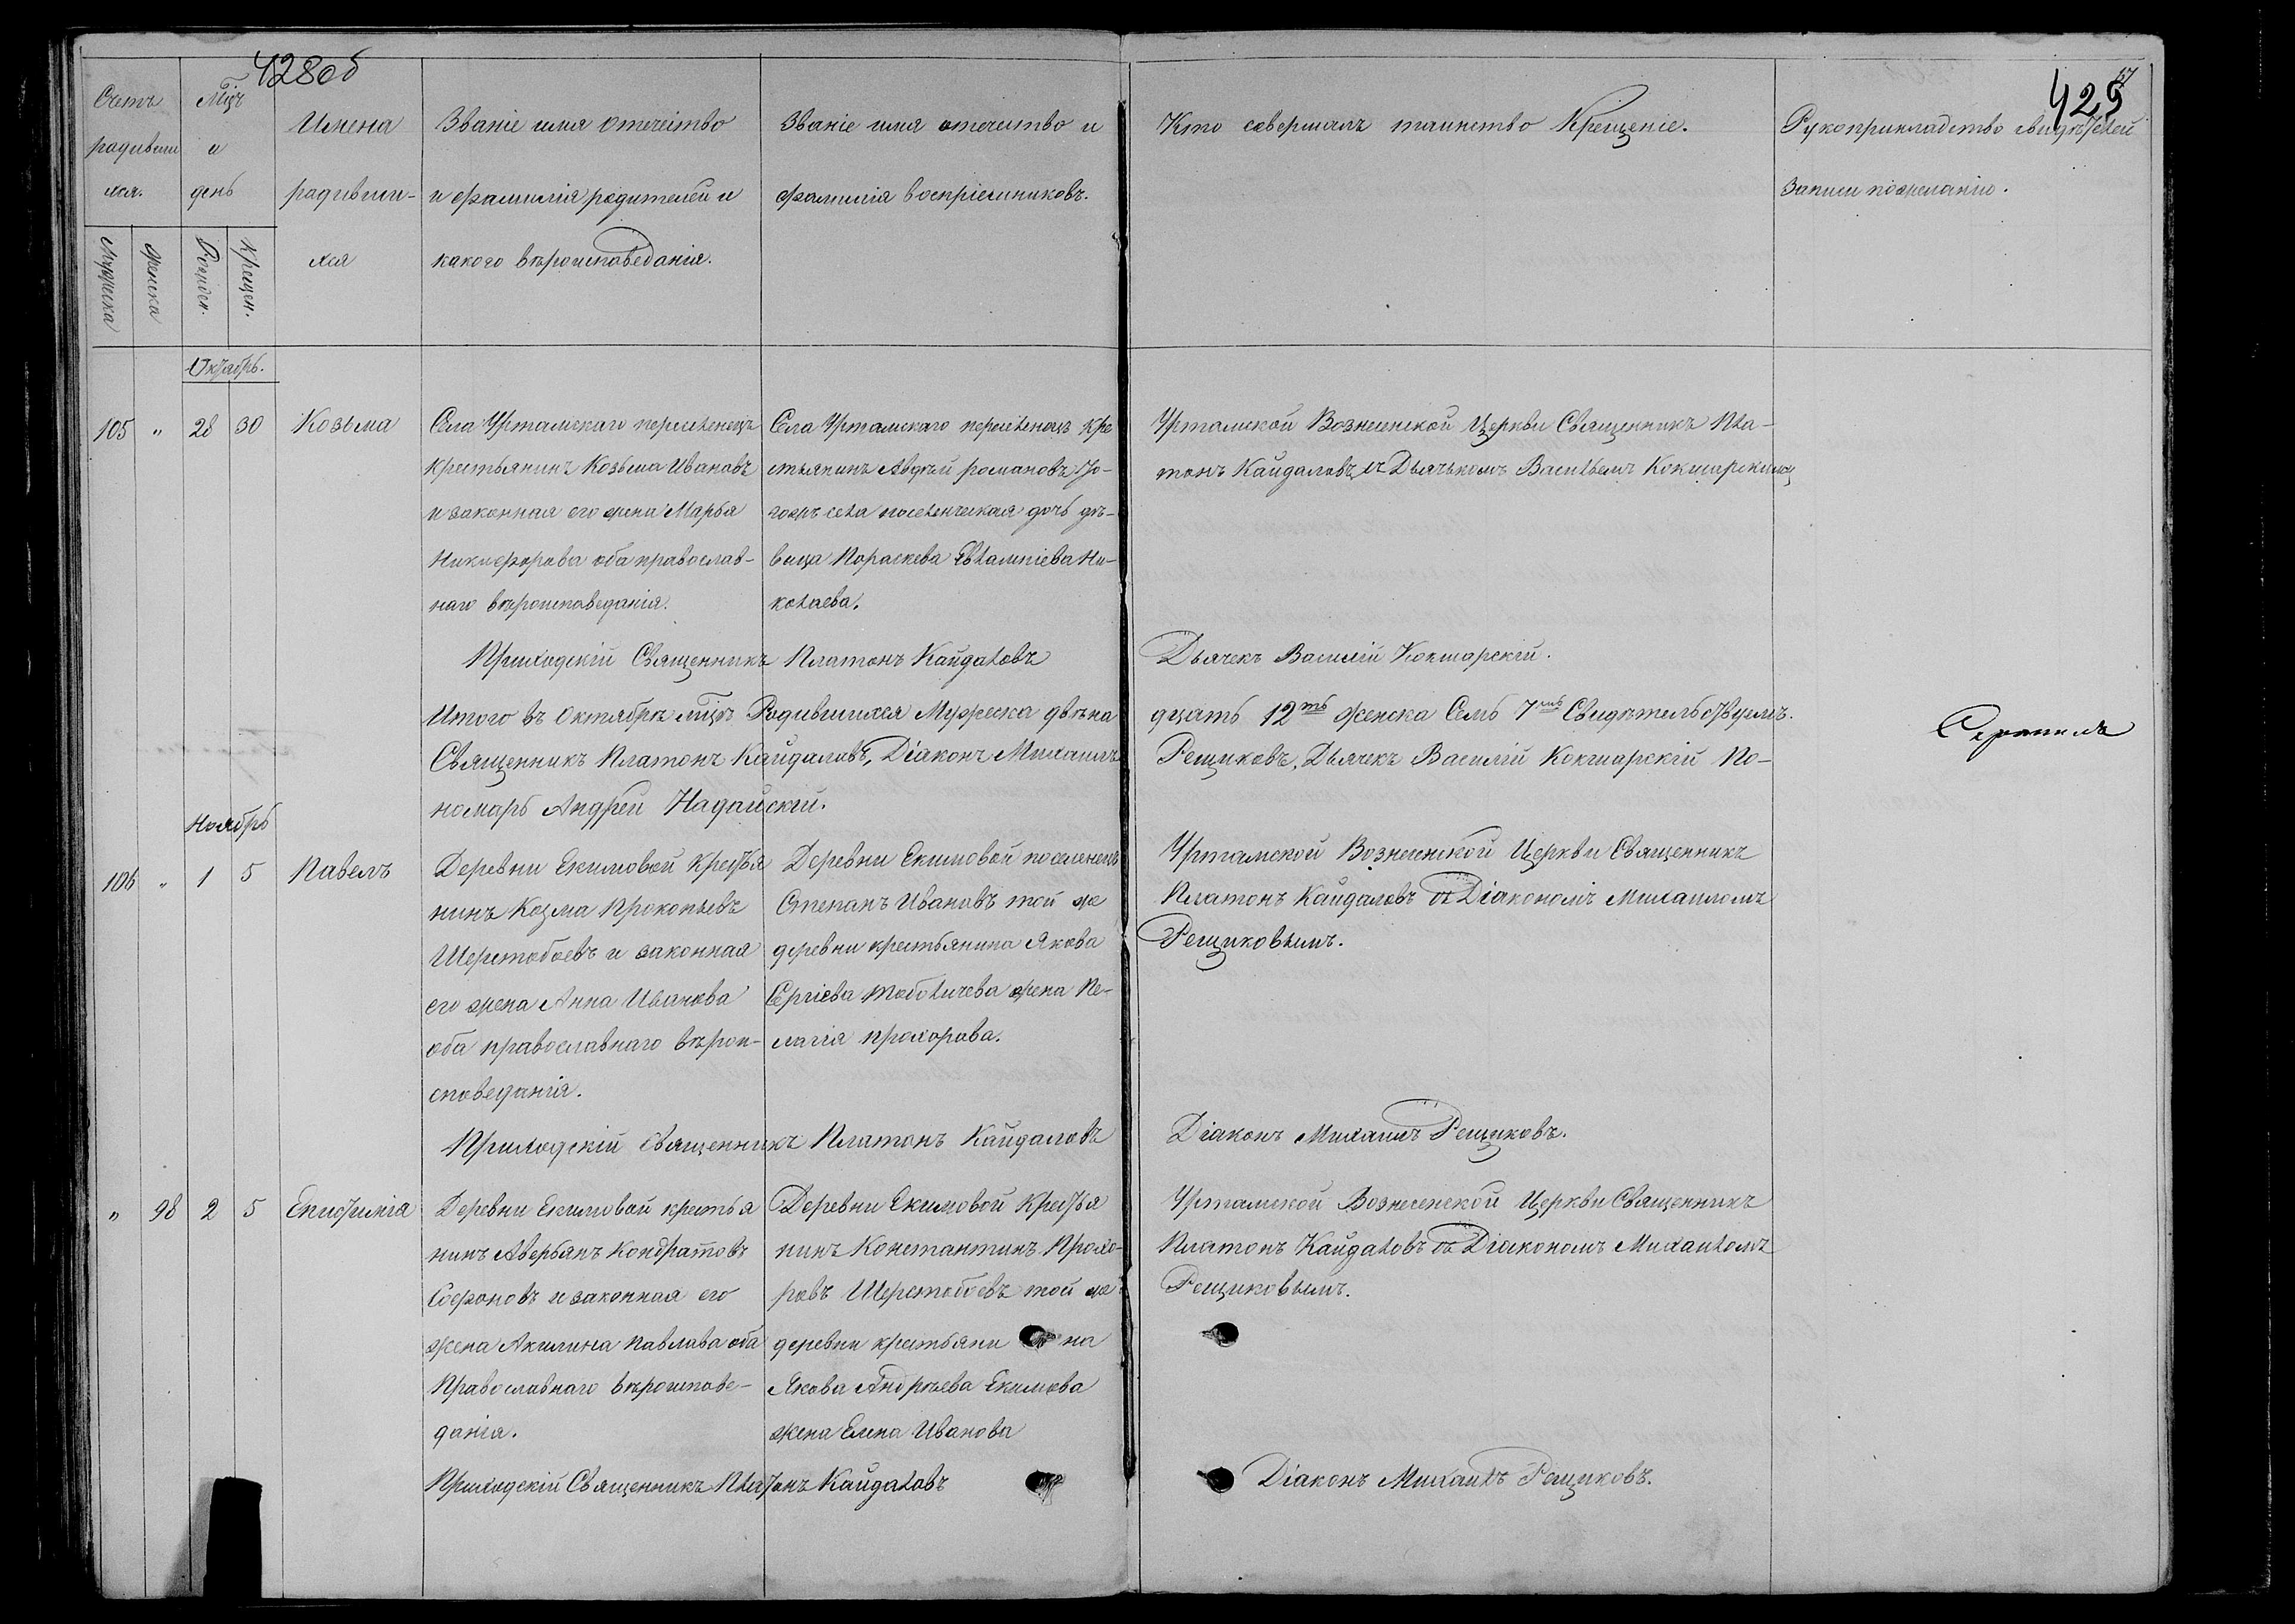 428об
Счетъ
родивши
хся.
Мцъ
и
день
Имена
родивши-
хся
Званіе имя отечество
и фамилія родителей и
какого вѣроисповеданія.
Званіе имя отечество и
фамилія воспріемниковъ.
Мужеска
Женска
Рожден.
Крещен.
Кто совершалъ таинство Крещеніе.
429
57
Рукоприкладство свидѣтелей
записи по желанію.
Октябрь.
105 " 28 30 Козьма
Села Уртамскаго переселенецъ
крестьянинъ Козьма Ивановъ
и законная его жена Марья
Никифорова оба православ-
наго вѣроисповеданія.
Села Уртамскаго переселенецъ кре
стьянинъ Авдѣй романовъ
села поселенческая дочь дѣ-
вица Пораскева Евлампіева Ни-
колаева.
Уртамской Вознесенской Церкви Священникъ Пла-
тонъ Кайдаловъ съ Дьячькомъ Васильемъ Кокшарскимъ
Приходскій Священникъ Платонъ Кайдаловъ
Дьячекъ Василій Кокшарскій.
Итого въ Октябрѣ мцѣ Родившихся Мужеска двѣна
дцать 12ть женска Семь 7мь Свидѣтельствуемъ.
Священникъ Платонъ Кайдаловъ, Діаконъ Михаилъ
Рещиковъ, Дьячекъ Василій Кокшарскій По-
номарь Андрей Надайскій.
Ноябрь
106 " 1 5 Павелъ
Деревни Екимовой крестья
нинъ Козма Прокопьевъ
Шерстобоевъ и законная
его жена Анна Иванова
оба православнаго вѣрои-
споведанія.
Деревни Екимовой поселенецъ
Степанъ Ивановъ той же
деревни крестьянина Якова
Сергіева Тоболичева жена Пе-
лагія прохорова.
Уртамской Вознесенской Церкви Священникъ
Платонъ Кайдаловъ съ Діакономъ Михаиломъ
Рещиковымъ.
Приходскій Священникъ Платонъ Кайдаловъ
Діаконъ Михаилъ Рещиковъ.
" 98 2 5 Епистимія
Деревни Екимовой крестья
нинъ Аверьянъ Кондратовъ
Софоновъ и законная его
жена Акилина Павлава оба
Православнаго вѣроиспове-
данія.
Деревни Екимовой крестья
нинъ Константинъ Прохо-
ровъ Шерстобоевъ той же
деревни крестьяни на
Якова Андрѣева Екимова
жена Елена Иванова
Уртамской Вознесенской Церкви Священникъ
Платонъ Кайдаловъ съ Діакономъ Михаиломъ
Рещиковымъ.
Приходскій Священникъ Платонъ Кайдаловъ
Діаконъ Михаилъ Рещиковъ.